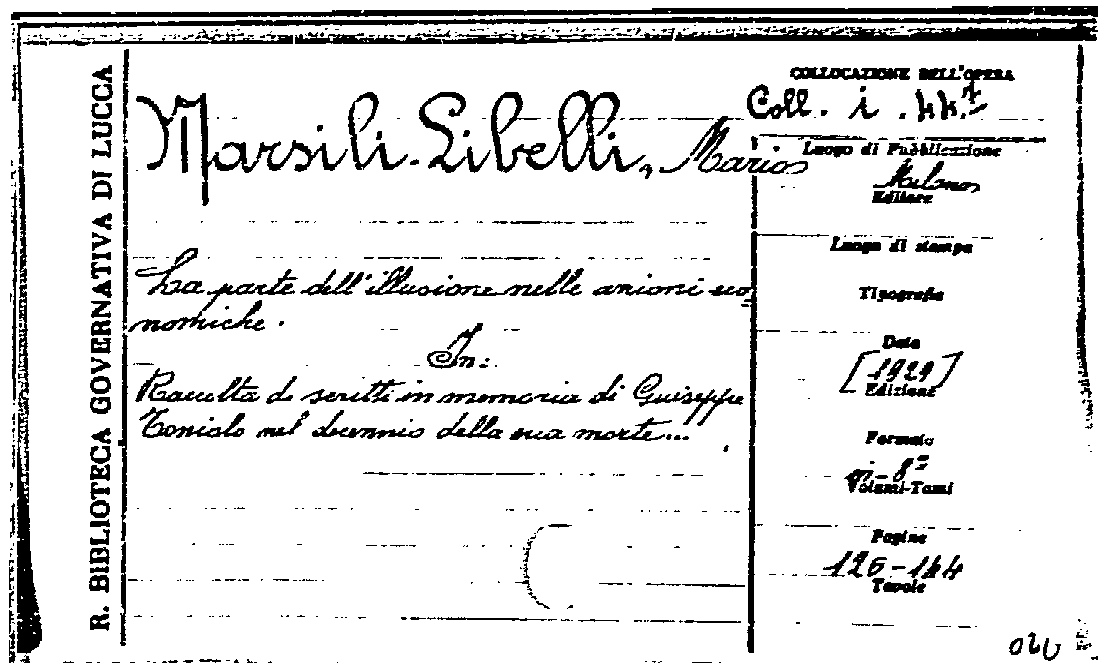 R. BIBLIOTECA GOVERNATIVA DI LUCCA
Marsili-Libelli, Mario
La parte dell'illusione nelle azioni eco
nomiche.
In:
Raccolta di scritti in memoria di Giuseppe
Toniolo nel decennio della sua morte...
COLLOCAZIONE DELL'OPERA
Coll. i. 44.7
Luogo di Pubblicazione
Milano
Editore
Luogo di stampa
Tipografia
Data
[1929]
Edizione
Formato
in-8º
Volumi-Tomi
Pagine
126-144
Tavole